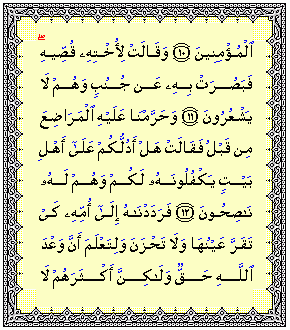 ٱلْمُؤْمِنِينَ ١٠ وَقَالَتْ لِأُخْتِهِۦ قُصِّيهِ
فَبَصُرَتْ بِهِۦ عَن جُنُبٍ وَهُمْ لَا
يَشْعُرُونَ ١١ وَحَرَّمْنَا عَلَيْهِ ٱلْمَرَاضِعَ
مِن قَبْلُ فَقَالَتْ هَلْ أَدُلُّكُمْ عَلَىٰٓ أَهْلِ
بَيْتٍ يَكْفُلُونَهُۥ لَكُمْ وَهُمْ لَهُۥ
نَٰصِحُونَ ١٢ فَرَدَدْنَٰهُ إِلَىٰٓ أُمِّهِۦ كَىْ
تَقَرَّ عَيْنُهَا وَلَا تَحْزَنَ وَلِتَعْلَمَ أَنَّ وَعْدَ
ٱللَّهِ حَقٌّ وَلَٰكِنَّ أَكْثَرَهُمْ لَا